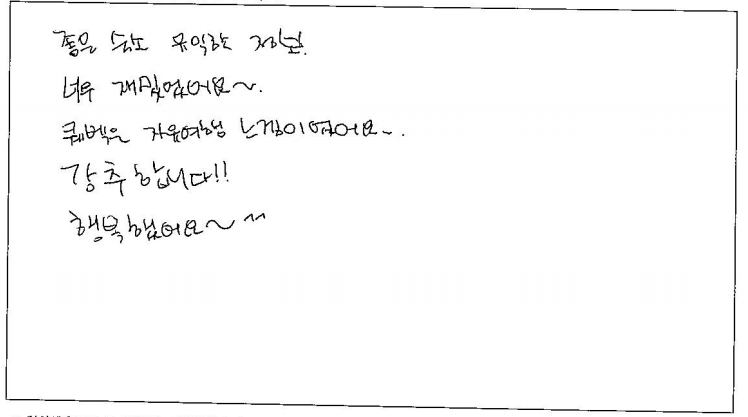 좋은 숙소 유익한 정보.
너무 재밌었어요~.
퀘벡은 자유여행 느낌이었어요~.
강추합니다!!
행복했어요~ ^^